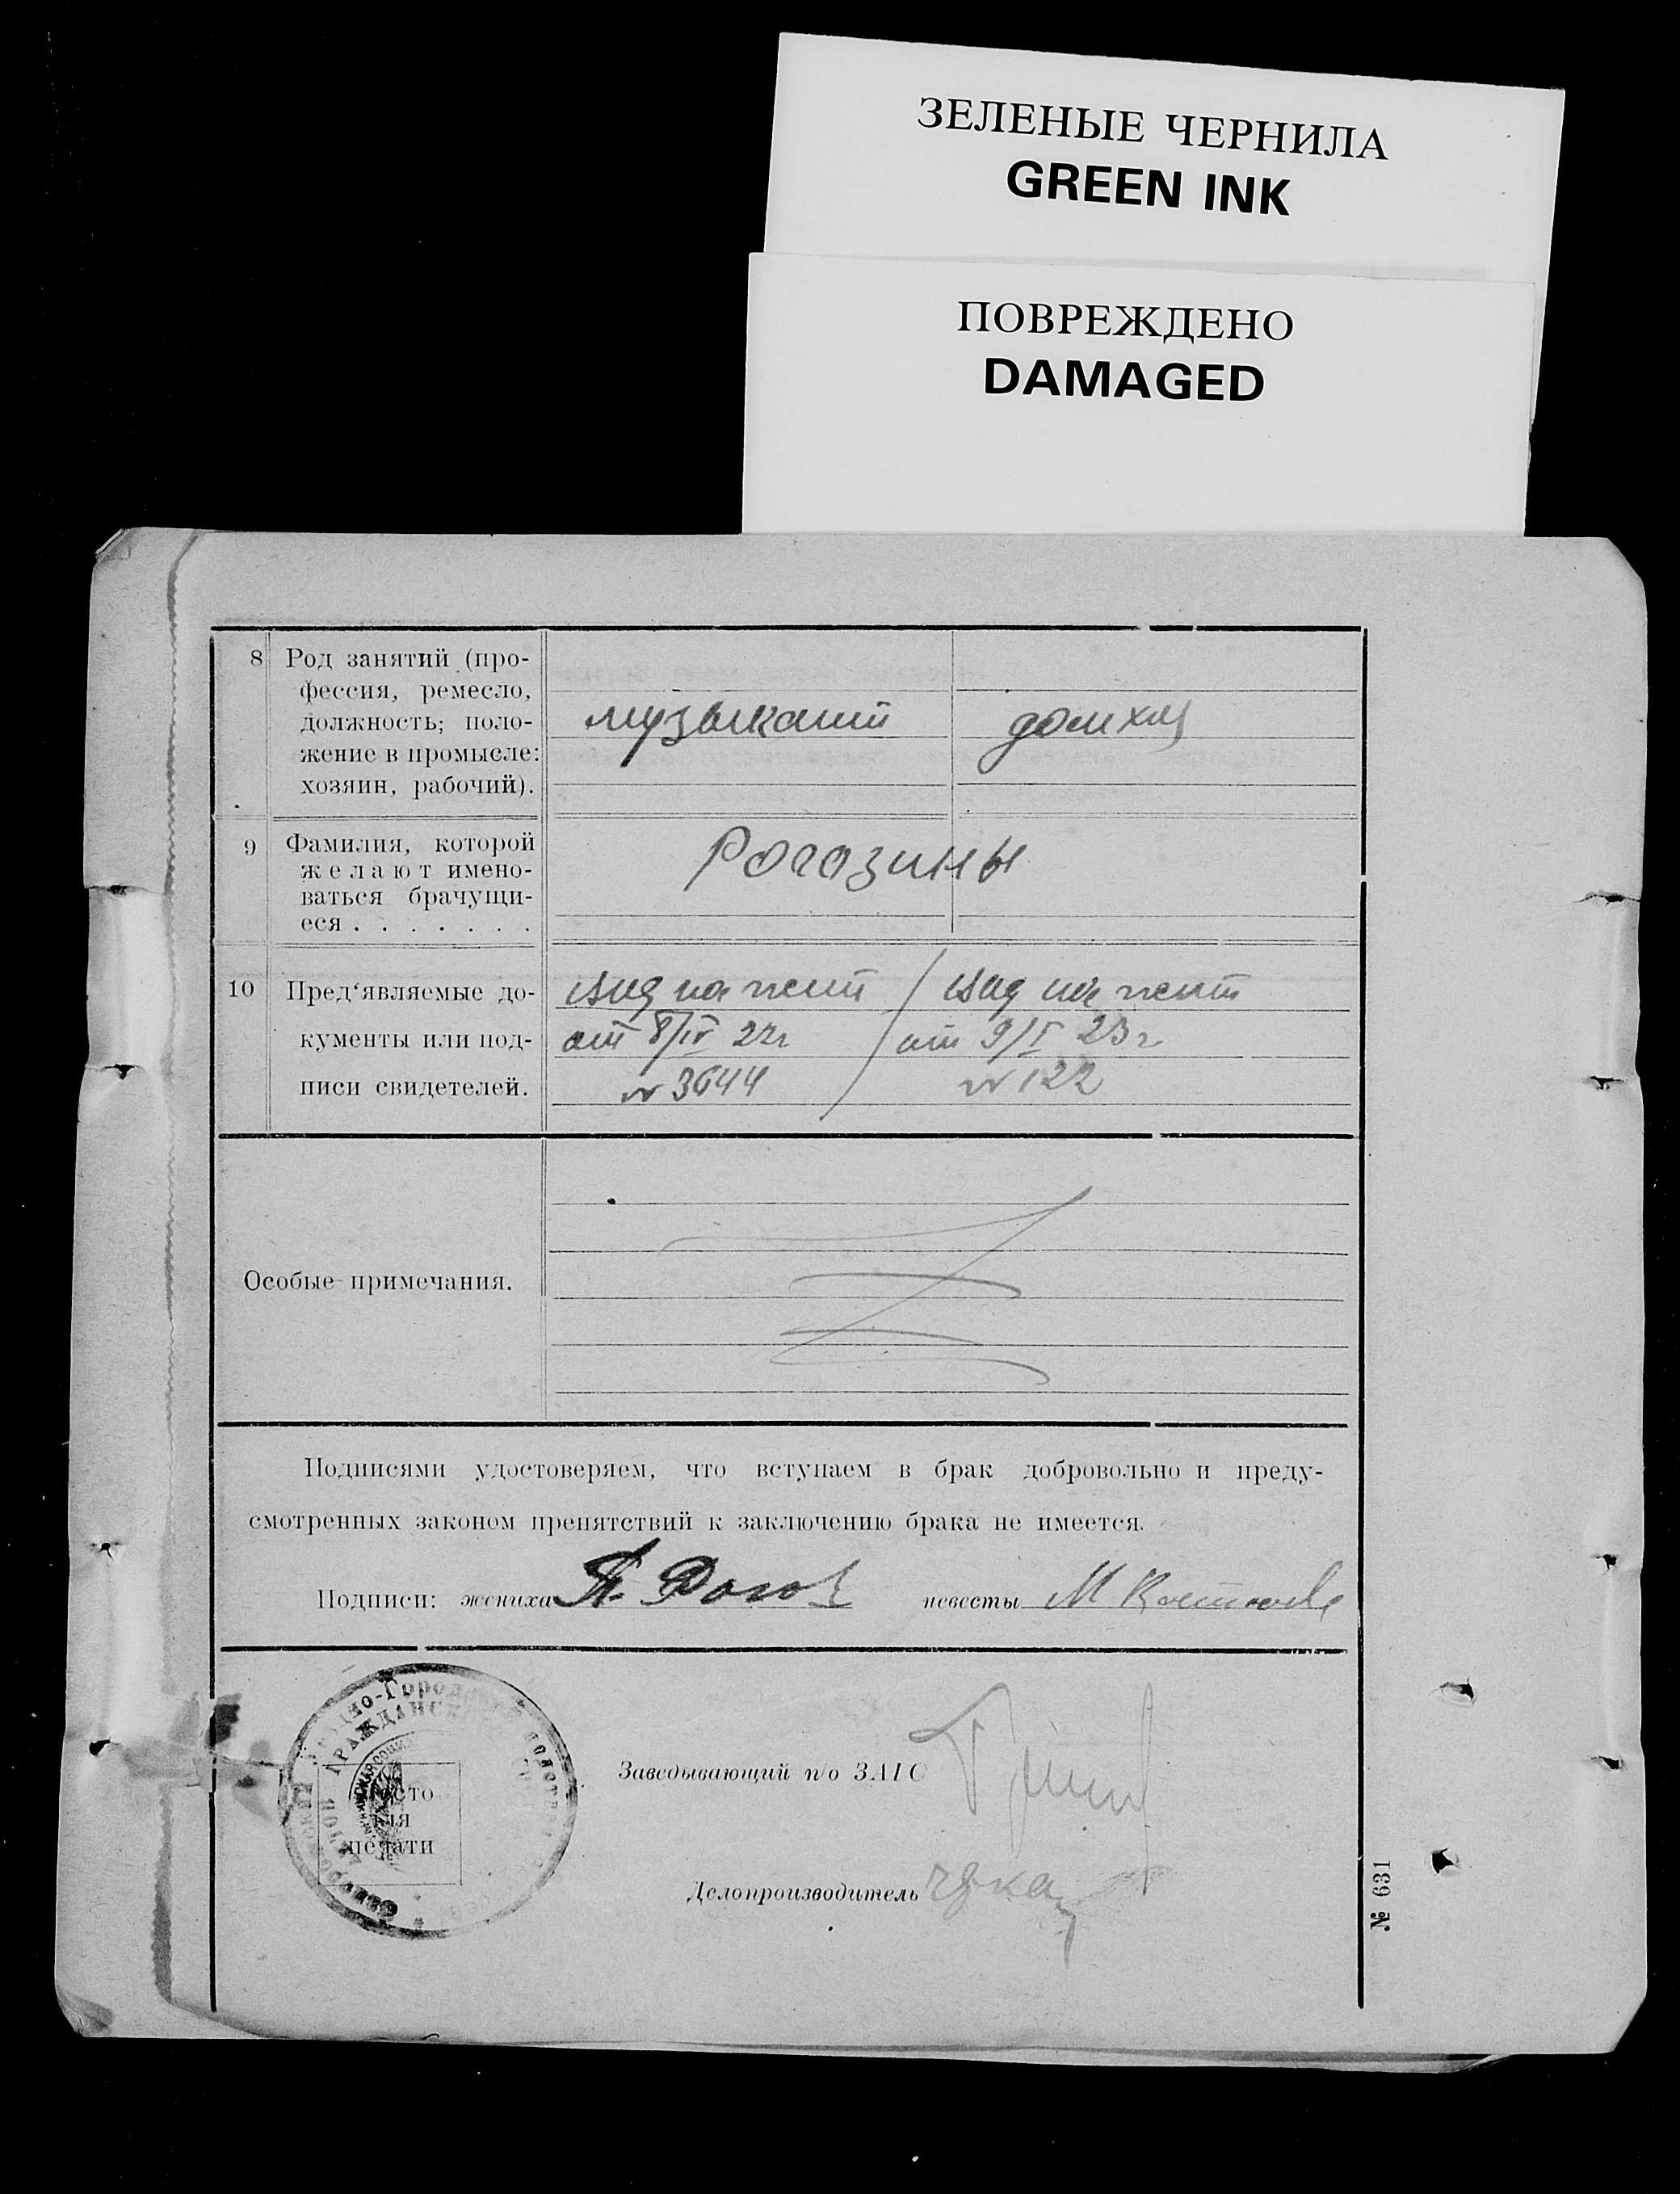 ЗЕЛЕНЫЕ ЧЕРНИЛА
GREEN INK
ПОВРЕЖДЕНО
DAMAGED
8 Род занятий (про-
фессия, ремесло,
должность; поло-
жение в промысле:
хозяин, рабочий).
музыкант домхоз
9 Фамилия, которой
желают имено-
ваться брачущи-
еся . . . . . . .
Рогозины
10 Пред‘являемые до-
кументы или под-
писи свидетелей.
вид на жит / вид на жит
от 8/IV 22г / от 9/I 23г
№ 3644 № 122
Особые примечания.
Подписями удостоверяем, что вступаем в брак добровольно и преду-
смотренных законом препятствий к заключению брака не имеется.
Подписи: жениха невесты М
Заведывающий п/о ЗАГС
Место
для
печати
Делопроизводитель
№ 631